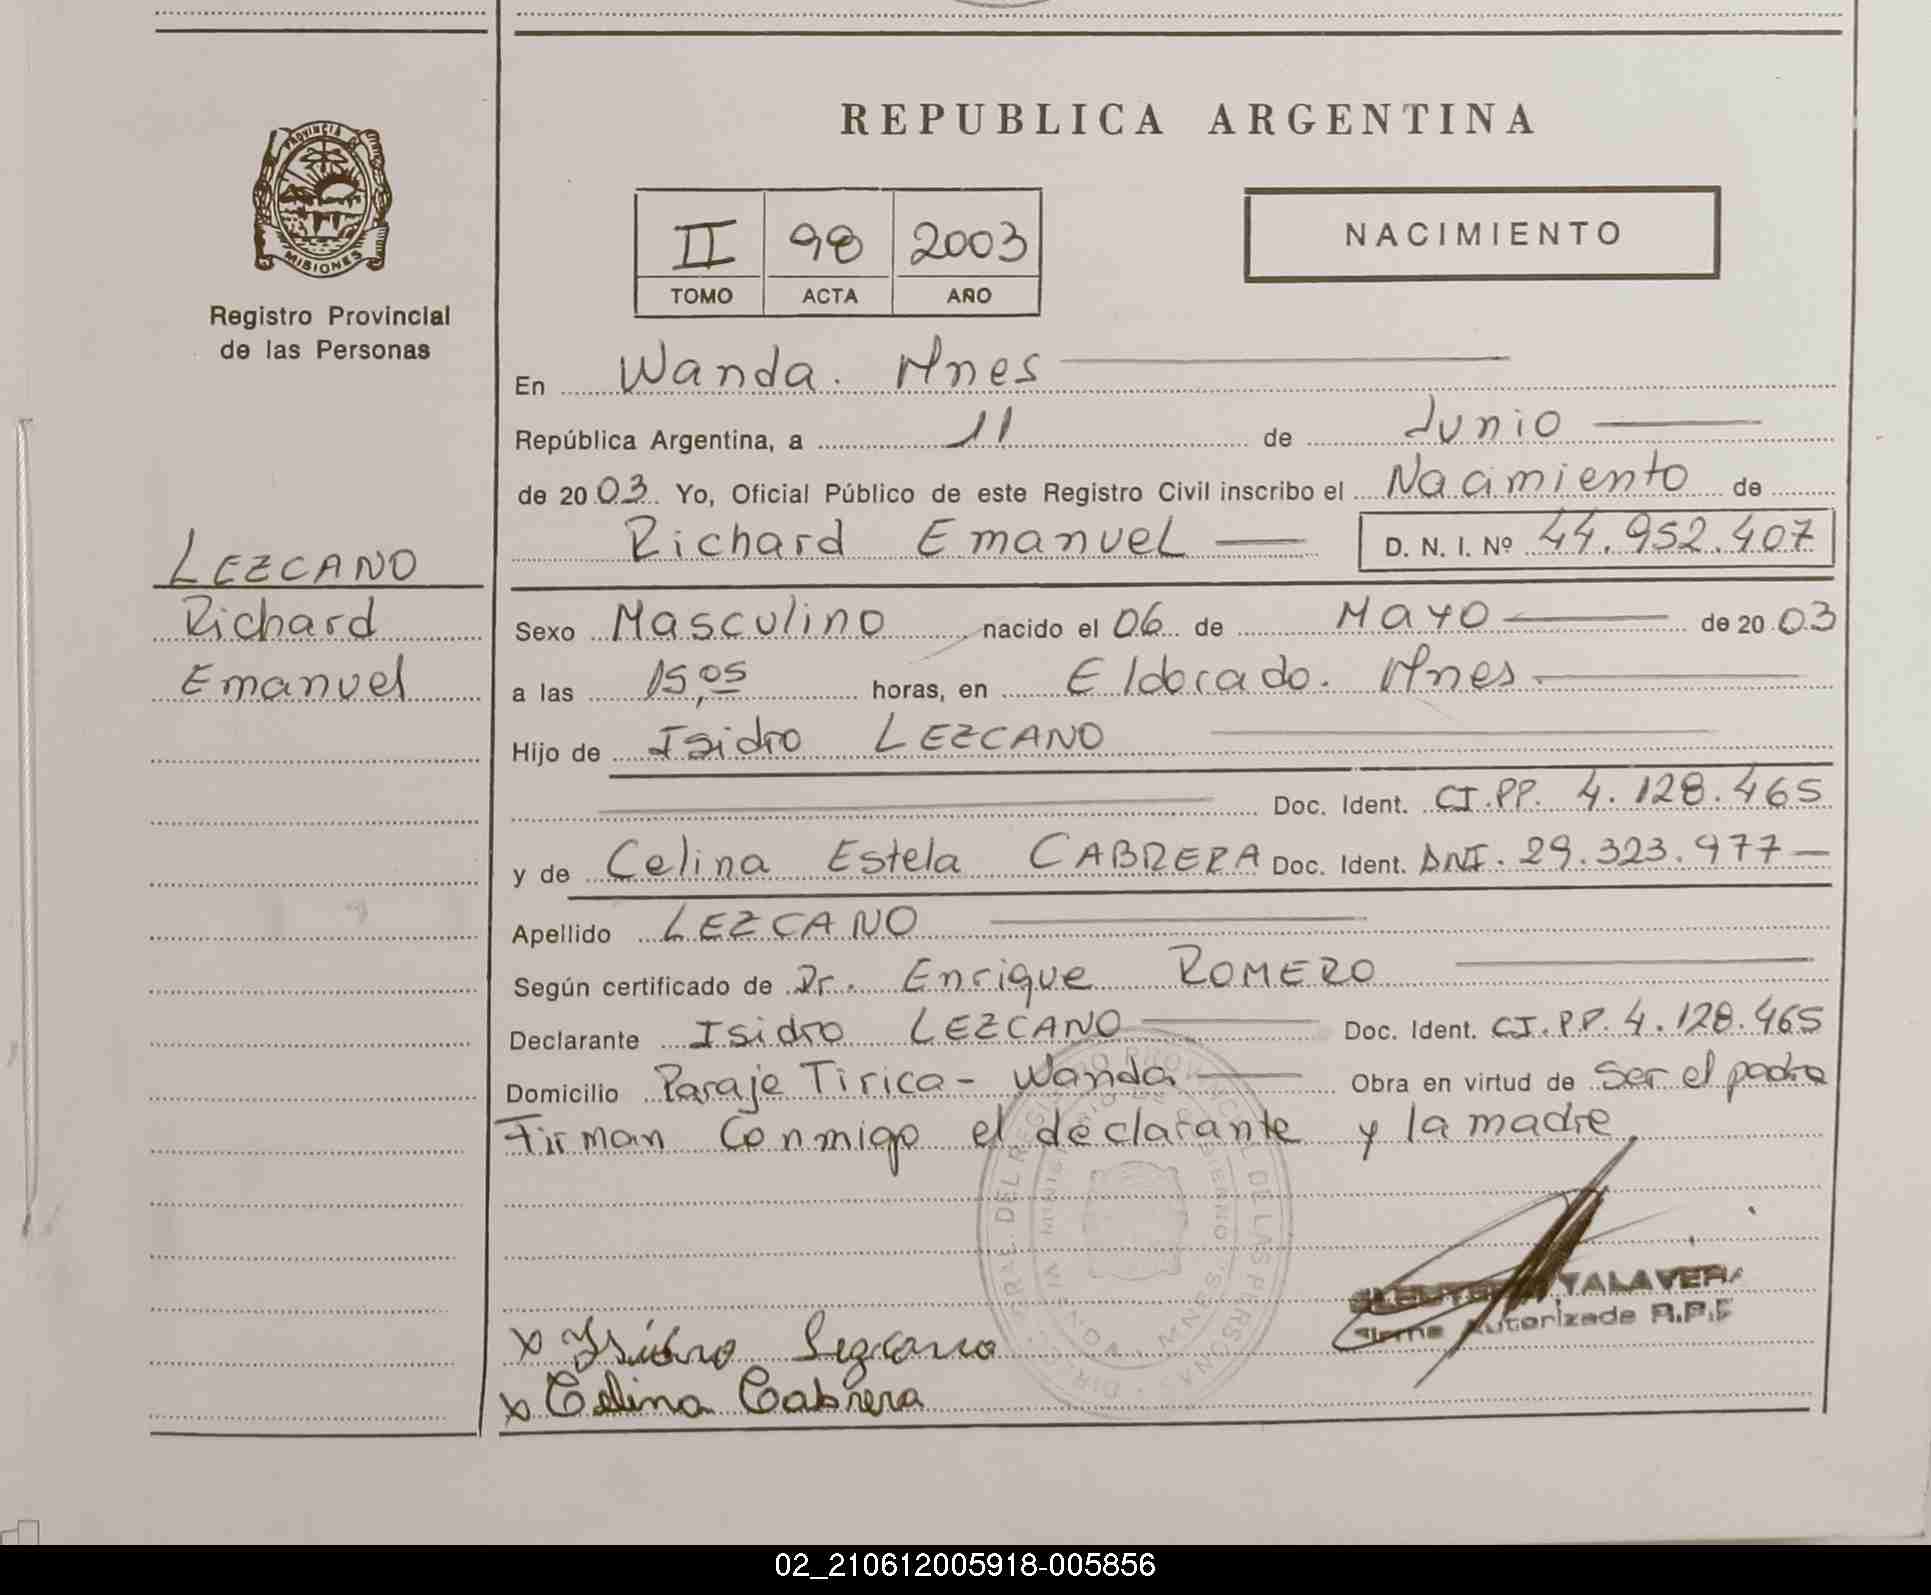 REPUBLICA ARGENTINA
PROVINCIA DE
MISIONES
Registro Provincial
de las Personas
II 98 2003
TOMO ACTA AÑO
NACIMIENTO
En Wanda. Mnes
República Argentina, a 11 de Junio
de 2003 Yo, Oficial Público de este Registro Civil inscribo el Nacimiento de
Richard Emanuel D. N. I. Nº 44.952.407
LEZCANO
Richard
Emanuel
Sexo Masculino nacido el 06 de Mayo de 2003
a las 15,05 horas, en Eldorado. Mnes
Hijo de Isidro LEZCANO
Doc. Ident. CI.PP. 4.128.465
y de Celina Estela CABRERA Doc. Ident. DNI. 29.323.977
Apellido LEZCANO
Según certificado de Dr. Enrique ROMERO
Declarante Isidro LEZCANO Doc. Ident. CI.PP. 4.128.465
Domicilio Paraje Tirica - Wanda Obra en virtud de Ser el padre
Firman Conmigo el declarante y la madre
TALAVERA
Firma Autorizada R.P.P
x Isidro Lezcano
x Celina Cabrera
02_210612005918-005856